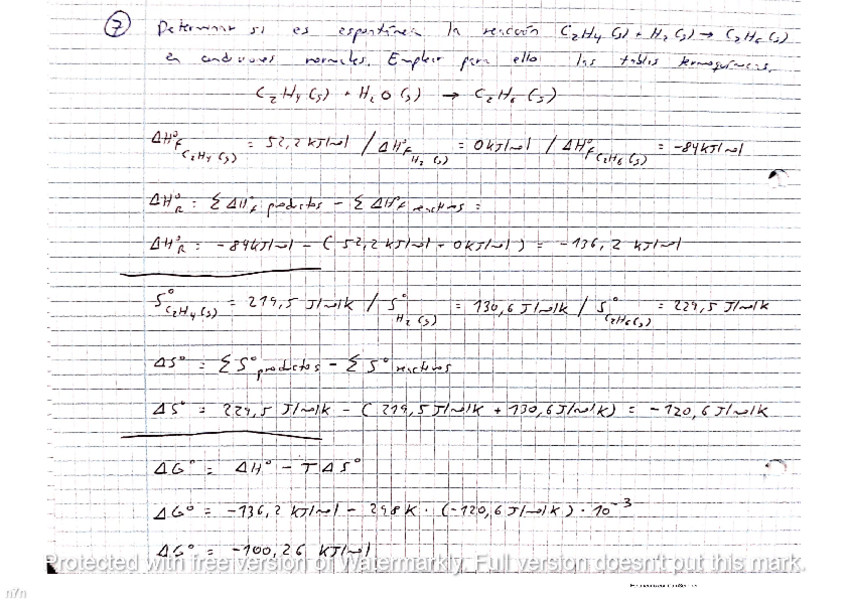 7 Determinar si es espontánea la reacción C2H4 (g) + H2 (g) → C2H6 (g)
en condiciones normales. Emplear para ello las tablas termoquímicas.
C2H4 (g) + H2O (g) → C2H6 (g)
ΔH°f C2H4 (g) = 52,2 kJ/mol / ΔH°f H2 (g) = 0 kJ/mol / ΔH°f C2H6 (g) = -84 kJ/mol
ΔH°R = Σ ΔH°f productos - Σ ΔH°f reactivos =
ΔH°R = -84 kJ/mol - (52,2 kJ/mol + 0 kJ/mol) = -136,2 kJ/mol
S° C2H4 (g) = 219,5 J/molK / S° H2 (g) = 130,6 J/molK / S° C2H6 (g) = 229,5 J/molK
ΔS° = Σ S° productos - Σ S° reactivos
ΔS° = 229,5 J/molK - (219,5 J/molK + 130,6 J/molK) = -120,6 J/molK
ΔG° = ΔH° - TΔS°
ΔG° = -136,2 kJ/mol - 298 K · (-120,6 J/molK) · 10^-3
ΔG° = -100,26 kJ/mol
Protected with free version of Watermarkly. Full version doesn't put this mark.